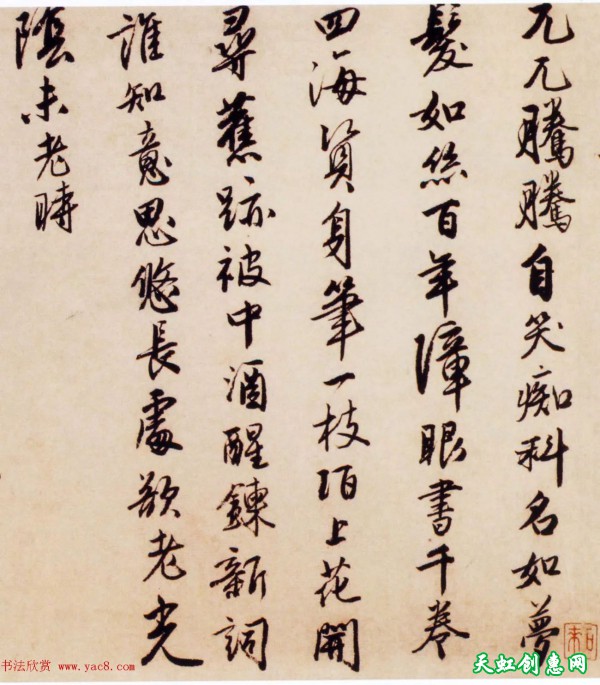 兀兀騰騰自笑痴科名如夢
髮如絲百年障眼書千卷
四海資身筆一枝陌上花開
尋舊跡被中酒醒鍊新詞
誰知意思悠長處欲老光
陰未老時
书法欣赏 www.yac8.com
天虹创惠网